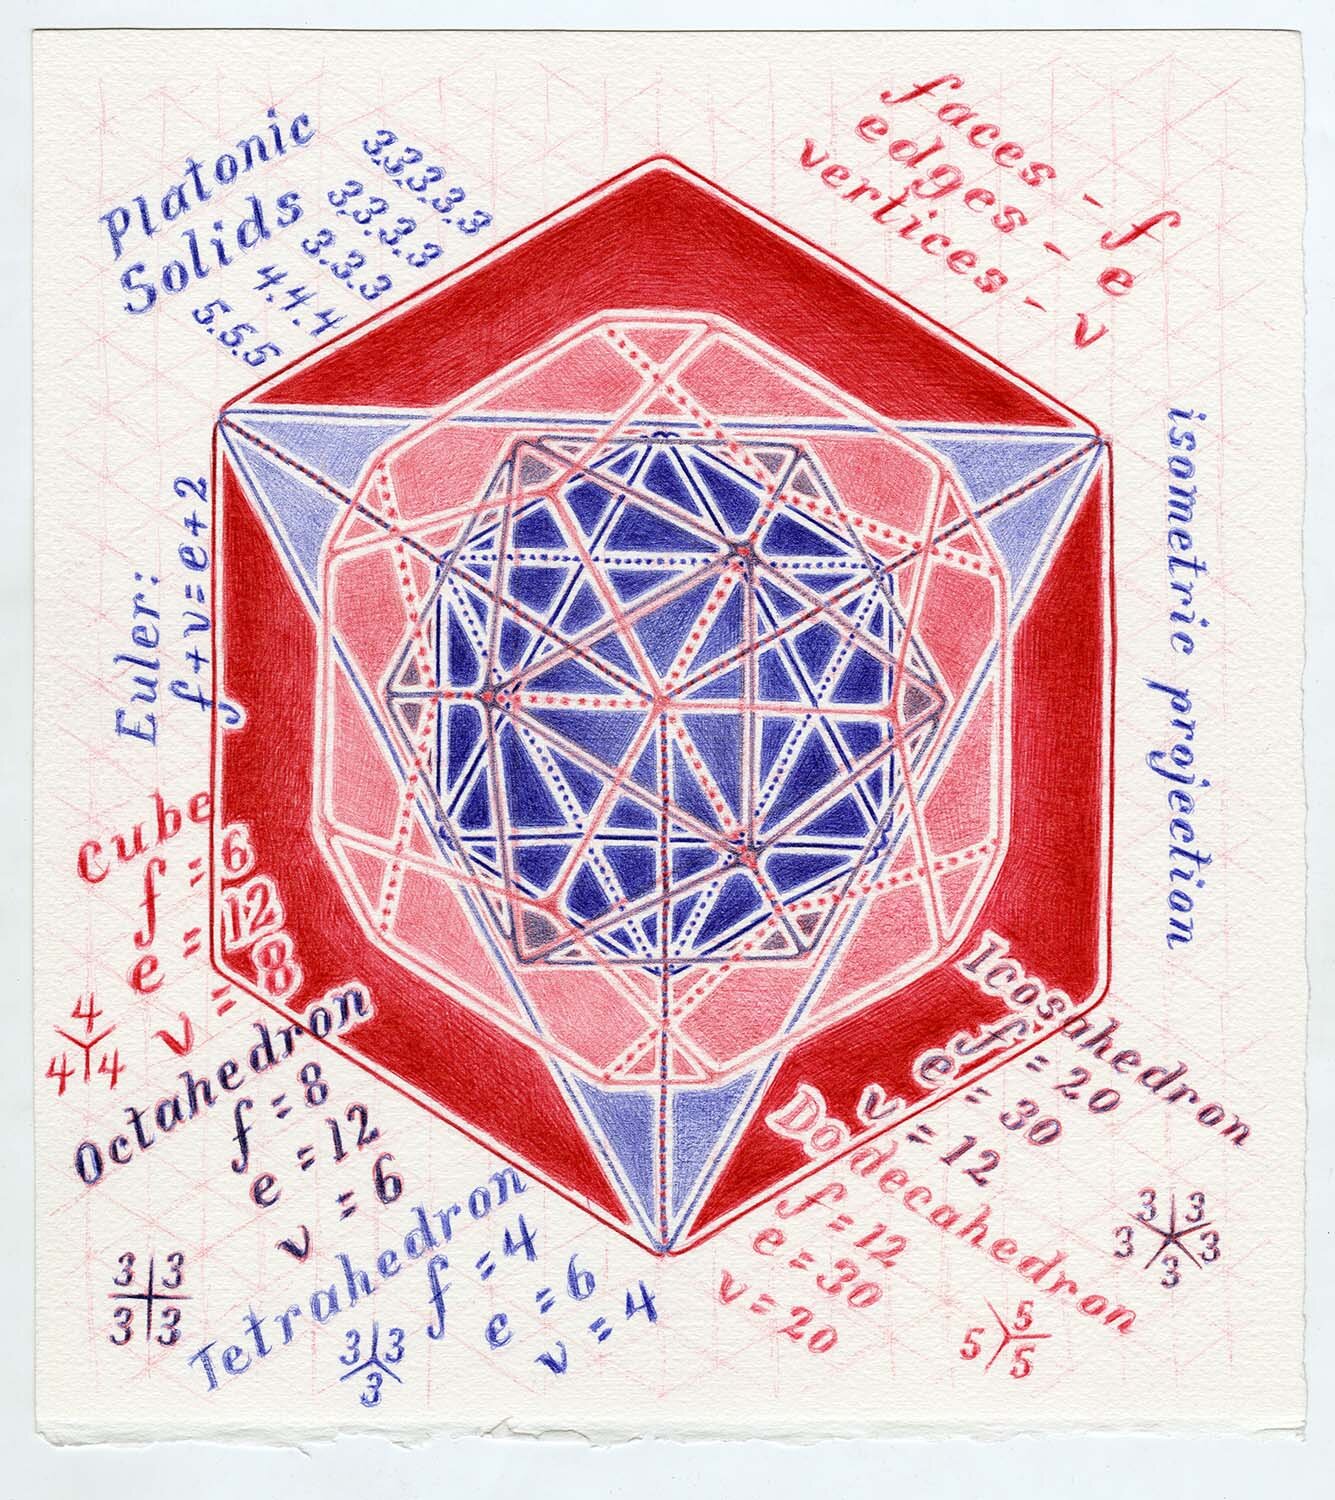 Platonic
Solids
3.3.3.3.3
3.3.3.3
3.3.3
4.4.4
5.5.5
faces - f
edges - e
vertices - v
isometric projection
Euler:
f+v=e+2
Cube
f = 6
e = 12
v = 8
4
4 4
Octahedron
f = 8
e = 12
v = 6
3 3
3 3
Tetrahedron
f = 4
e = 6
v = 4
3 3
3
Icosahedron
f = 20
e = 30
v = 12
3 3
3 3
3
Dodecahedron
f = 12
e = 30
v = 20
5
5 5